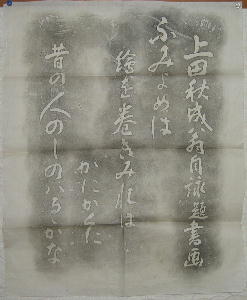 上田秋成翁自詠題書画
ふみよめは
繪を巻きみれは
かにかくに
昔の人のしのハるゝかな